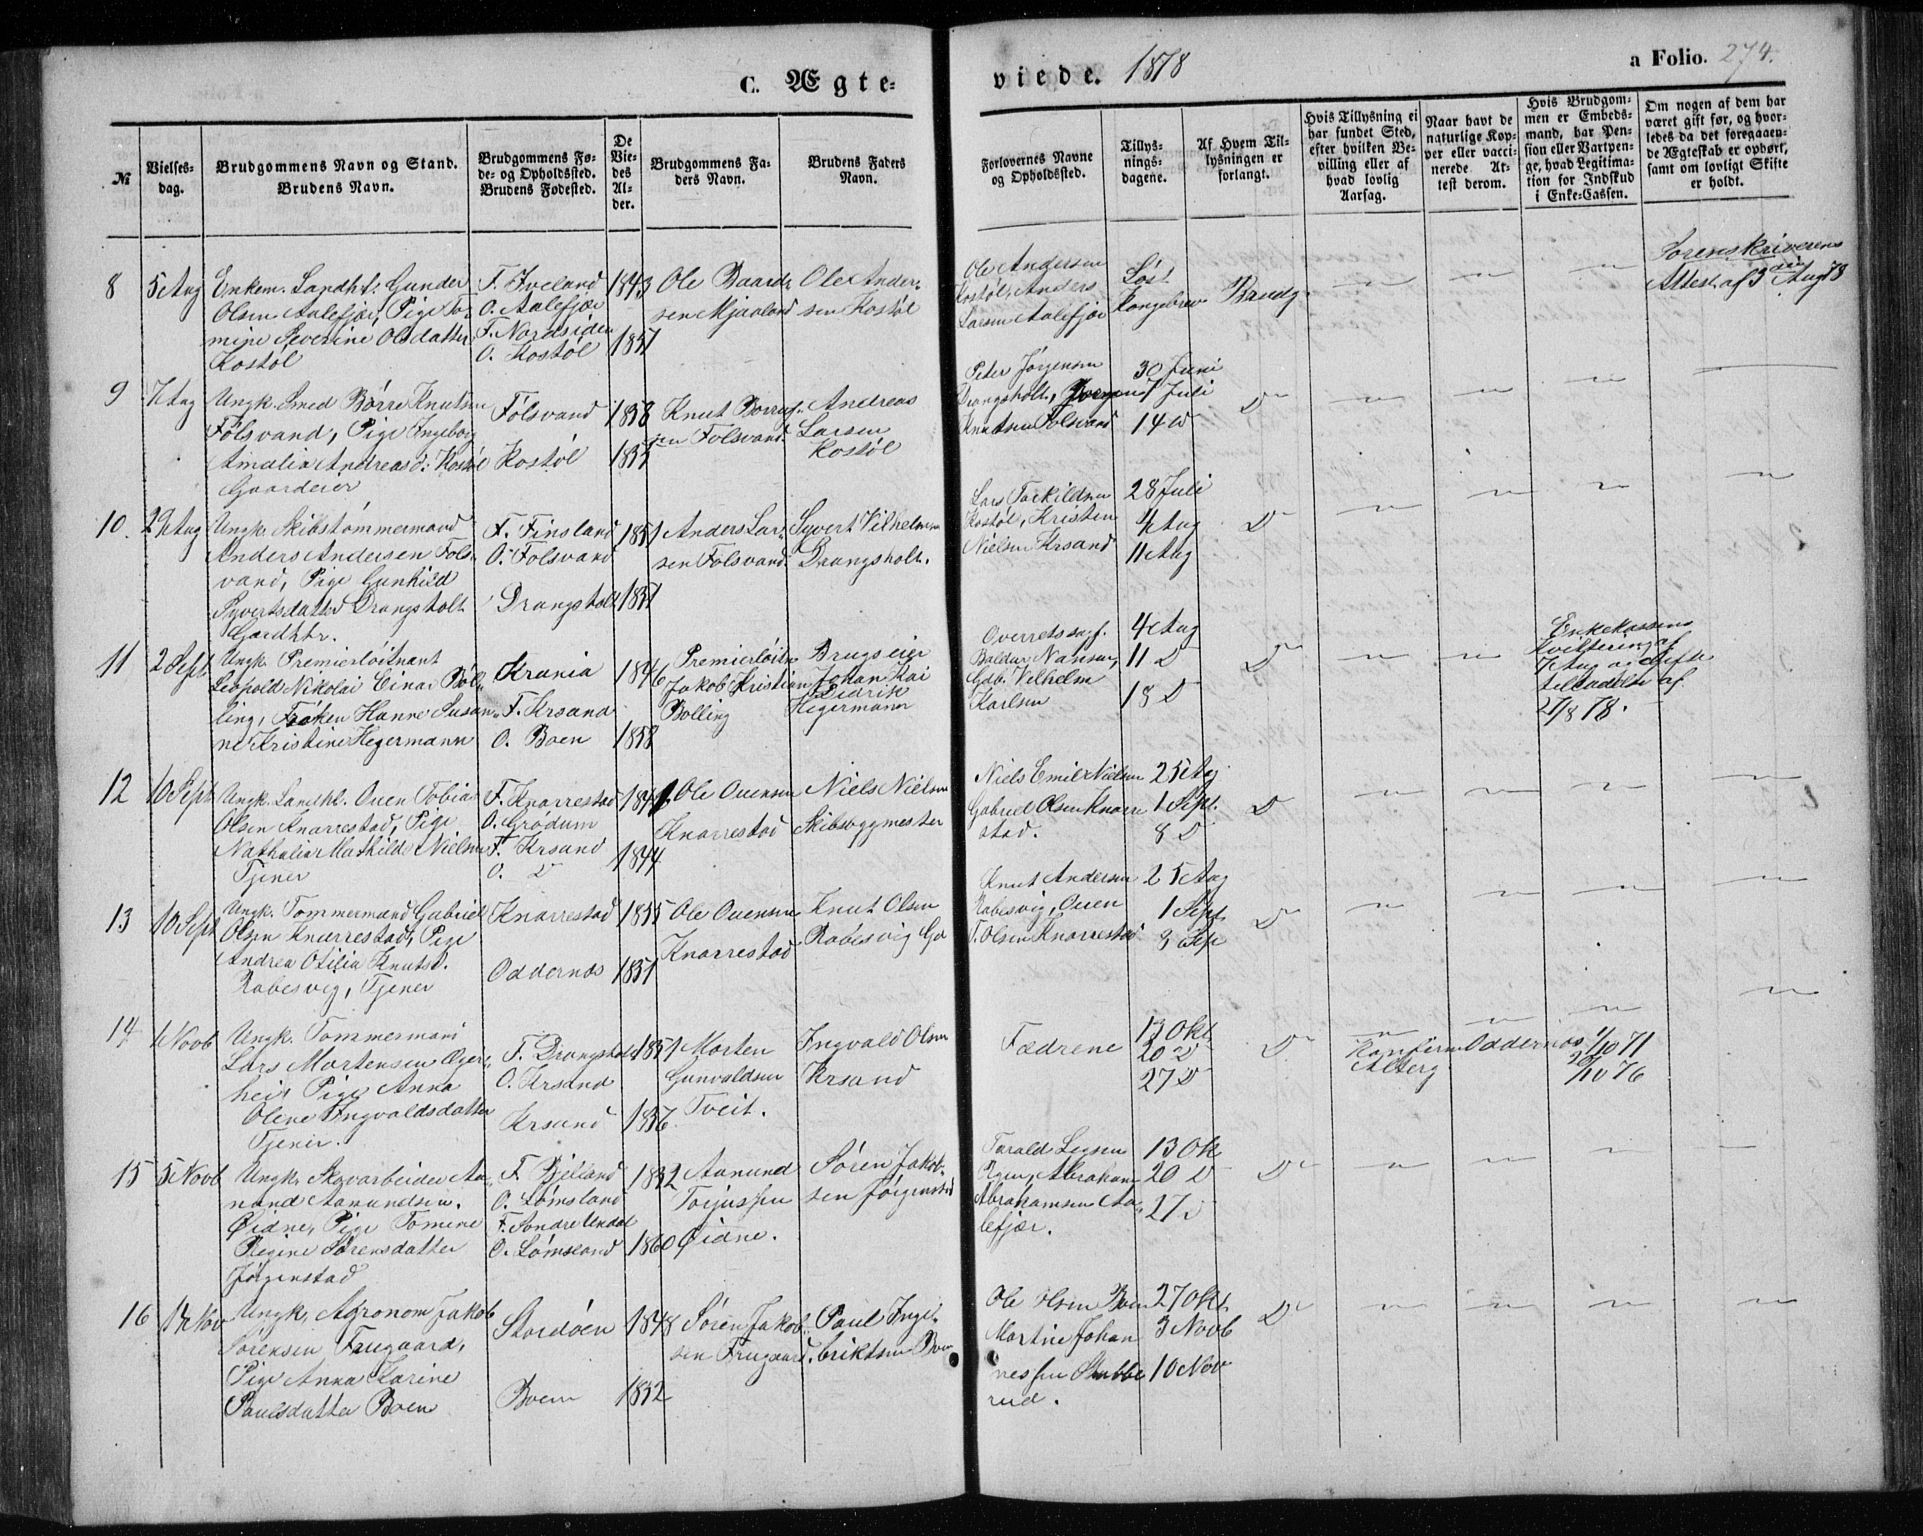 C. Ægte-
viede. 1878
a Folio. 274.
№
Vielses-
dag.
Brudgommens Navn og Stand.
Brudens Navn.
Brudgommens Fø-
de- og Opholdssted.
Brudens Fødested.
De
Vie-
des
Al-
der.
Brudgommens Fa-
ders Navn.
Brudens Faders
Navn.
Forlovernes Navne
og Opholdssted.
Tillys-
nings-
dagene.
Af Hvem Til-
lysningen er
forlangt.
Hvis Tillysning ei
har fundet Sted,
efter hvilken Be-
villing eller af
hvad lovlig
Aarsag.
Naar havt de
naturlige Kop-
per eller vacci-
nerede At-
test derom.
Hvis Brudgom-
men er Embeds-
mand, har Pen-
sion eller Vartpen-
ge, hvad Legitima-
tion for Indskud
i Enke-Cassen.
Om nogen af dem har
været gift før, og hvor-
ledes da det foregaaen-
de Ægteskab er ophørt,
samt om lovligt Skifte
er holdt.
8
5 Aug
Enkem. Landhl. Gunder
Olsen Aalefjær, Pige To-
mine Severine Olsdatter
Kostøl
F. Iveland
O. Aalefjær
F. Nordsiden
O. Kostøl
1843
1857
Ole Baard-
sen Mjaaland
Ole Ander-
sen Kostøl
Ole Andersen
Kostøl, Anders
Larsen Aalefjær
Løst
Kongebrev
Brudg.
Sorenskriverens
Attest af 3die Aug 78
9
7 Aug
Ungk. Smed Børre Knutsen
Følsvand, Pige Ingeborg
Amalia Andreasd: Kostøl
Gaardeier
Følsvand
Kostøl
1858
1855
Knut Borruf-
sen Følsvand
Andreas
Larsen
Kostøl
Peter Jørgensen
Drangsholt,
Knutsen Følsvand
30 Juni
7 Juli
14 D
D
10.
29 Aug
Ungk. Skibstømmermand
Anders Andersen Føls-
vand, Pige Gunhild
Syvertsdatter Drangsholt
Gaardbr.
F. Finsland
O. Følsvand
Drangsholt
1851
1857
Anders Lar-
sen Følsvand
Syvert Vilhelmsen
Drangsholt.
Lars Torkildsen
Kostøl, Kristen
Nielsen Krsand
28 Juli
4 Aug
11 Aug
D
11
2 Sept
Ungk. Premierløitnant
Leopold Nikolai Einar Bøl-
ling, Frøken Hanne Susan-
ne Kristine Hegermann
Krania
F. Krsand
O. Boen
1846
1858
Premierløitn
Jakob Kristian
Bølling
Brugseier
Johan Kai
Didrik
Hegermann
Overretssagf.
Baldur Nansen,
Gdb. Vilhelm
Karlsen
4 Aug
11 D
18 D
D
Enkekassens
Kvittering af
7 Aug og Gifte
tilladelse af
21/8 78.
12
10 Sept
Ungk. Landhl. Ouen Tobias
Olsen Knarrestad, Pige
Nathalia Mathilde Nielsen
Tjener
F. Knarrestad
O. Grødum
F. Krsand
O. D
1844
Ole Ouensen
Knarrestad
Niels Nielsen
Skibsbygmester
Niels Emil Nielsen
Gabriel Olsen Knarre
stad.
25 Aug
1 Sept.
8 D
D
13
10 Sept
Ungk. Tømmermand Gabriel
Olsen Knarrestad, Pige
Andrea Otilia Knutsd.
Rabesvig, Tjener
Knarrestad
Oddernæs
1855
1851
Ole Ouensen
Knarrestad
Knut Olsen
Rabesvig
Knut Andersen
Rabesvig, Ouen
T. Olsen Knarrestad
25 Aug
1 Sept
8 Sep
D
14
1 Novb
Ungk. Tømmermand
Lars Mortensen
hei, Pige Anna
Olene Ingvaldsdatter
Tjener.
F. Drangsholt
O. Krsand
Krsand
1851
1856
Morten
Gunvaldsen
Tveit.
Ingvald Olsen
Krsand
Fædrene
13 Okt
20 D
27 D
D
Konfirm Oddernæs 1/10 71
Alberg 29/10 76
15
5 Novb
Ungk. Skovarbeider Aa-
nund Aanundsen
Øidne, Pige Tomine
Regine Sørensdatter
Jørgenstad
F. Bjelland
O. Lømsland
F. Søndre Undal
O. Lømsland
1852
1860
Aanund
Torjussen
Øidne.
Søren Jakob-
sen Jørgenstad
Tarald
Abraham
Abrahamsen Aa-
lefjær.
13 Ok
20 D
27 D
D
16
14 Nov
Ungk. Agronom Jakob
Sørensen Frugaard,
Pige Anna Karine
Paulsdatter Boen
Stordøen
Boen
1848
1852
Søren Jakob-
sen Frugaard.
Paul Inge-
briktsen Boen
Ole Olsen Boen
Martin Johan
nessen Stubbe
rud.
27 Okt.
3 Novb
10 Nov
D